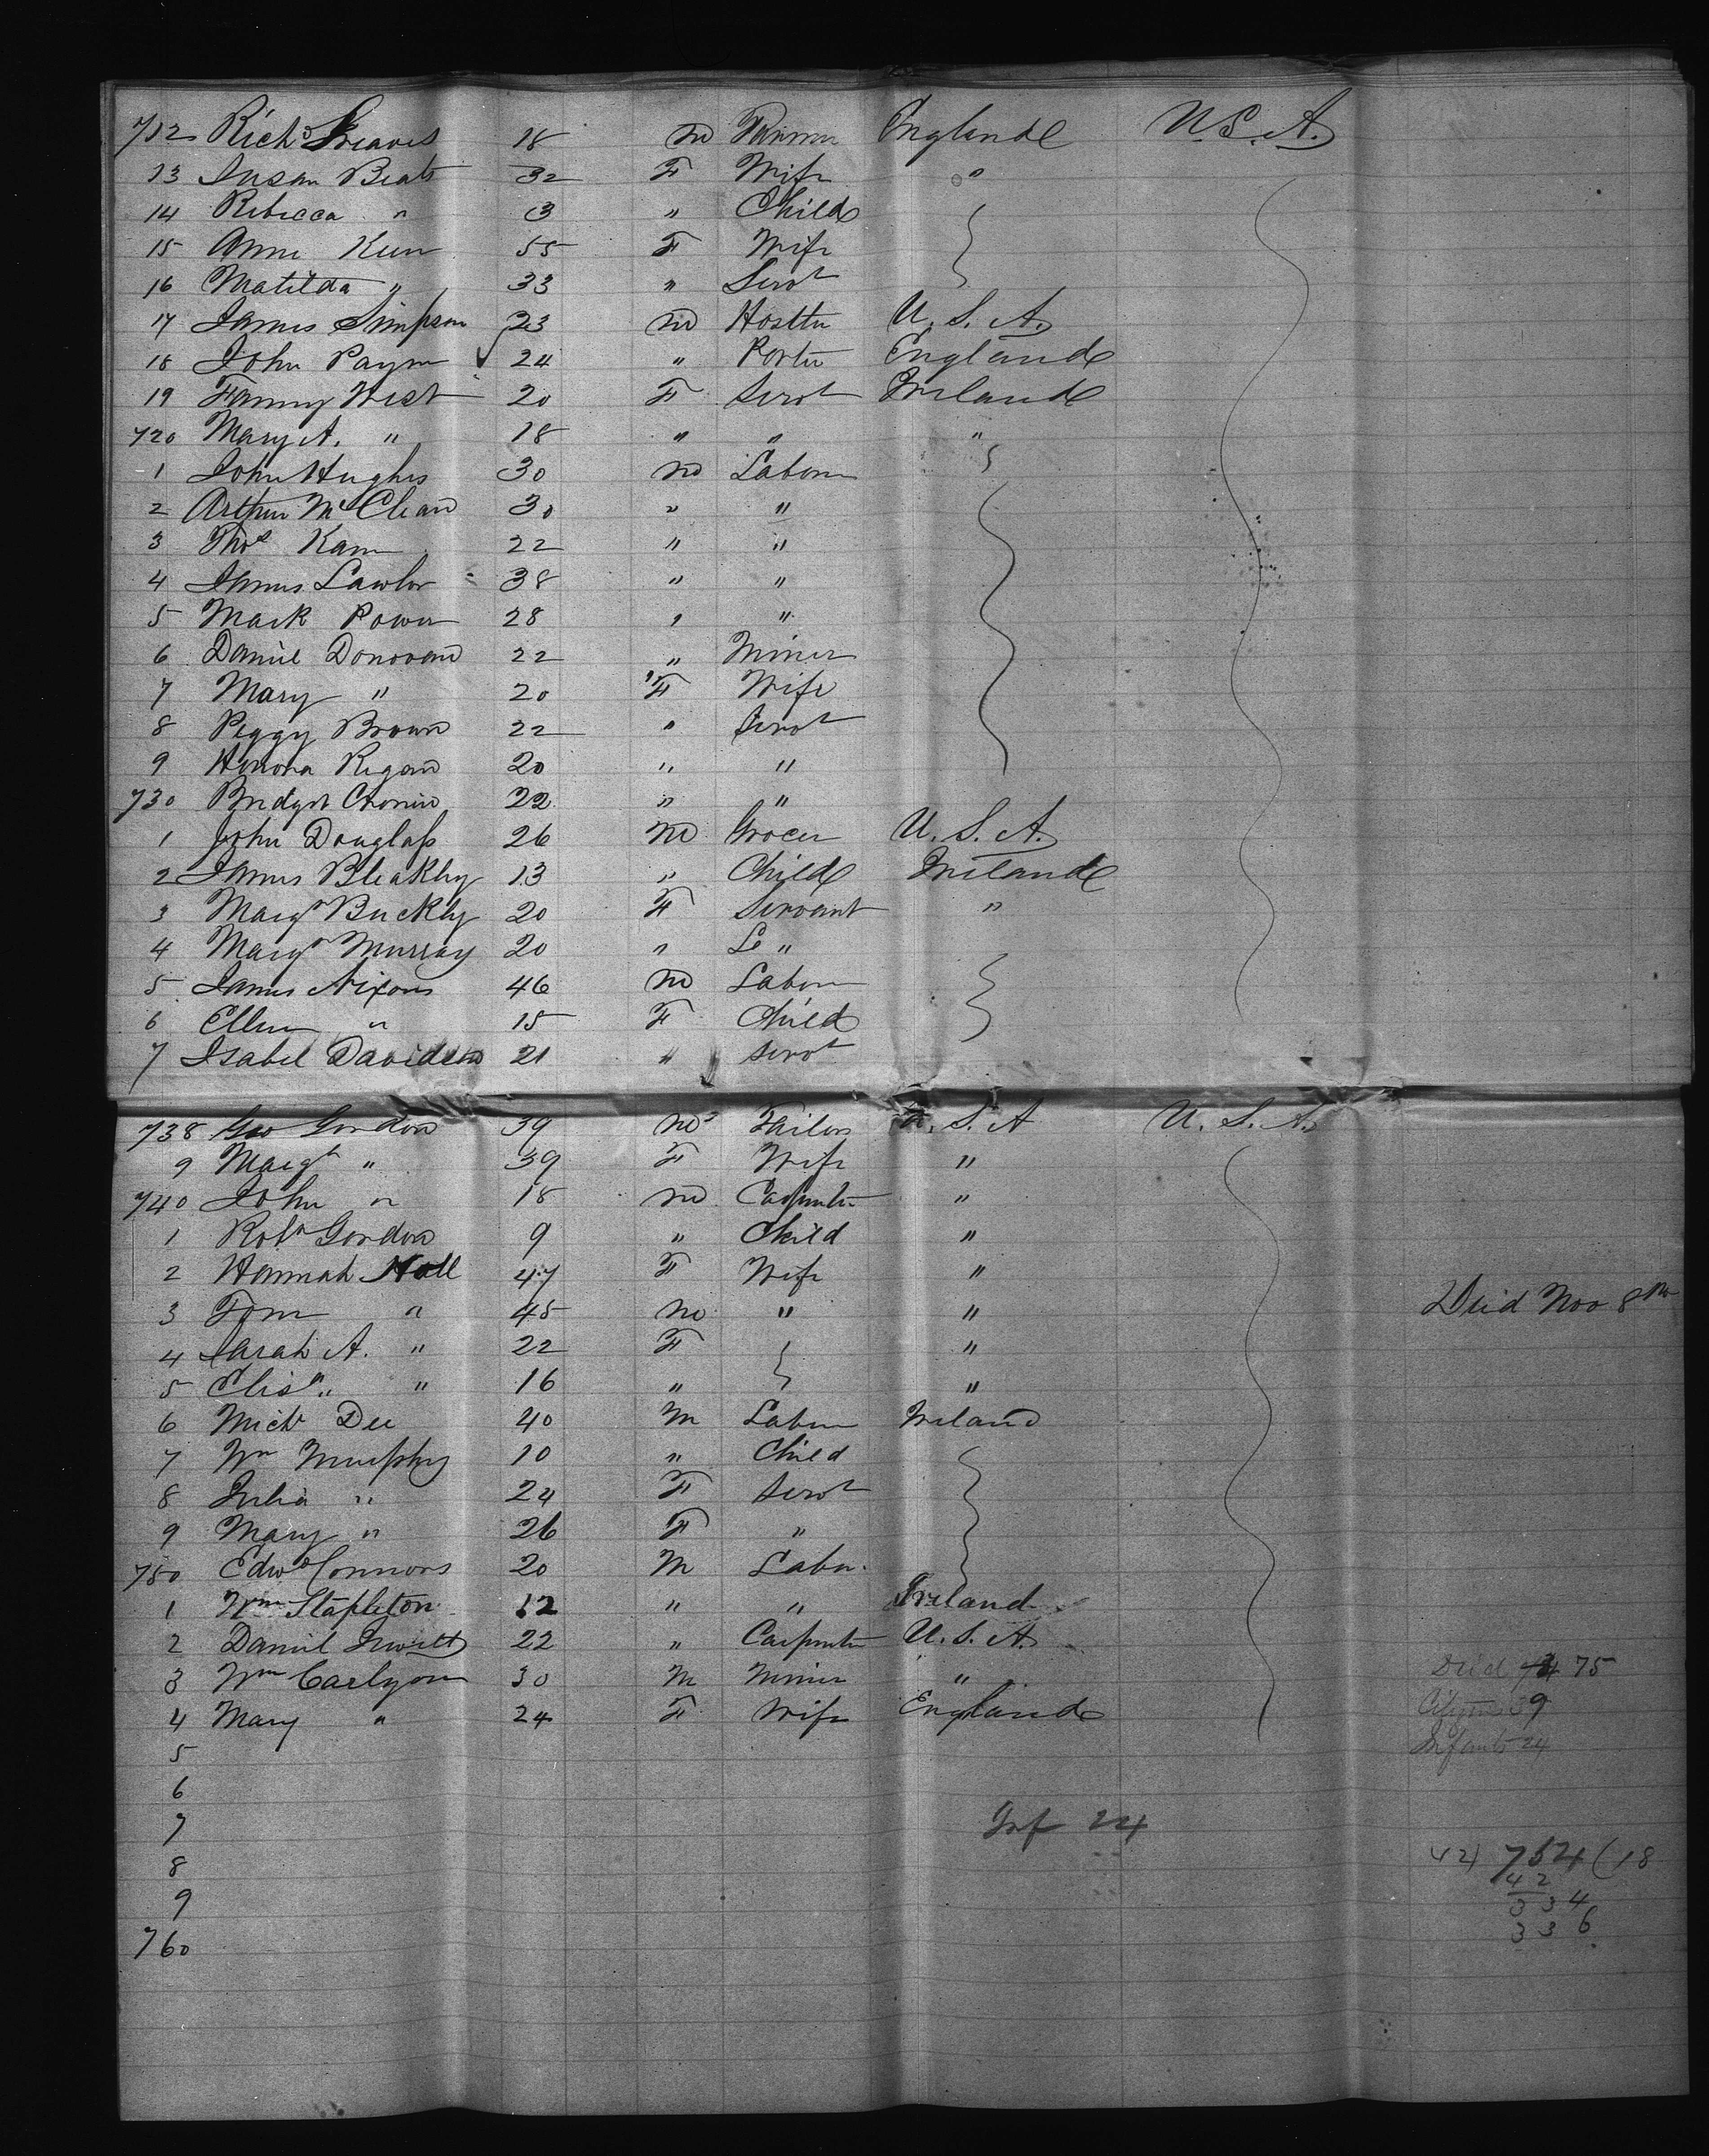 712 Richd Greaves 18 M Farmer England U.S.A.
13 Susan Beats 32 F Wife "
14 Rebecca " 3 " Child
15 Anne Keen 55 F Wife
16 Matilda " 33 " Servt
17 James Simpson 23 M Hostler U.S.A.
18 John Payne 24 " Porter England
19 Fanny West 20 F Servt Ireland
720 Mary A. " 18 " " "
1 John Hughes 30 M Labour
2 Arthur McClean 30 " "
3 Thos Kane 22 " "
4 James Lawlor 38 " "
5 Mark Power 28 " "
6 Daniel Donovan 22 " Miner
7 Mary " 20 F Wife
8 Peggy Brown 22 " Servt
9 Honora Regan 20 " "
730 Bridget Cronin 22 " "
1 John Douglass 26 M Grocer U.S.A.
2 James Bleakley 13 " Child Ireland
3 Margt Buckley 20 F Servant "
4 Margt Murray 20 " "
5 James Nixon 46 M Labour
6 Ellen " 15 F Child
7 Isabel Davidson 21 " Servt
738 Geo Gordon 39 M Tailor U.S.A U.S.A.
9 Margt " 39 F Wife "
740 John " 18 M Carpenter "
1 Robt Gordon 9 " Child "
2 Hannah Hall 47 F Wife "
3 Tom " 45 M " " Died Nov 8th
4 Sarah A. " 22 F "
5 Elisth " 16 " "
6 Michl Dee 40 M Labour Ireland
7 Wm Murphy 10 " Child
8 Julia " 24 F Servt
9 Mary " 26 F "
750 Edwd Connors 20 M Labor
1 Wm Stapleton 12 " " Ireland
2 Daniel Jewett 22 " Carpenter U.S.A.
3 Wm Carlyon 30 M Miner " Died 75
4 Mary " 24 F Wife England 39
5 Infants 24
6
7 Inf 24
8 42) 754 (18
42
9 334
336
760